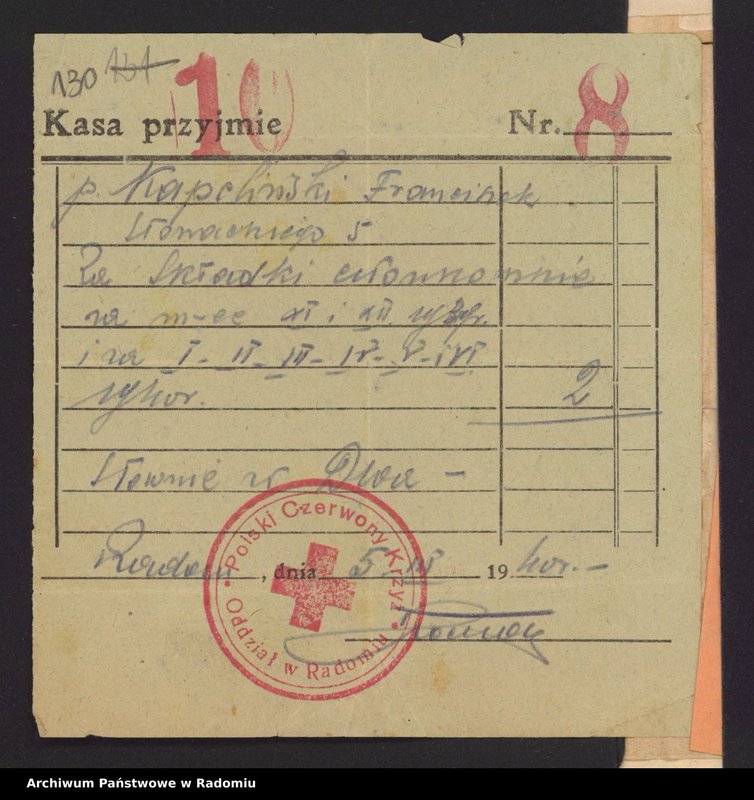 130 131
10 8
Kasa przyjmie Nr.
p. Kapeliński Franciszek
Słowackiego 5
Za składki członkowskie
za m-ce XI i XII
i za I - II - III - IV - V - i VI
2
Słownie zł Dwa -
Radom, dnia 5. III 19
Polski Czerwony Krzyż
Oddział w Radomiu
Archiwum Państwowe w Radomiu